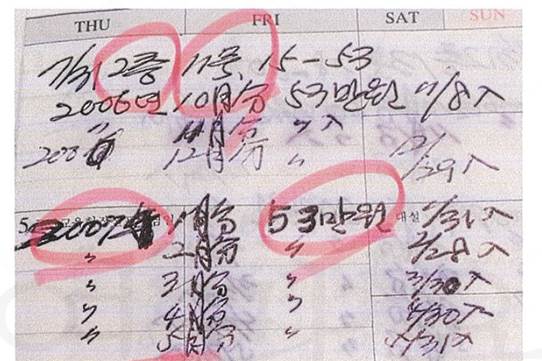 THU FRI SAT SUN
7/31 2층 11호 15-53
2006년 10月分 53만원 11/8 入
〃 11月分 〃 入
2006 12月分 〃 12/29 入
2007년 1月分 53만원 대설 1/31 入
〃 2月分 〃 2/28 入
〃 3月分 〃 3/30 入
〃 4月分 〃 4/30 入
〃 5月分 5/31 入